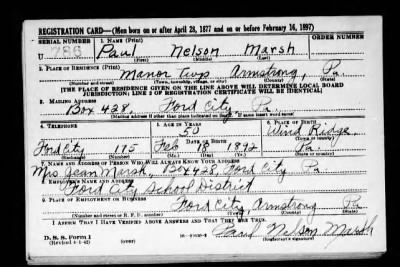 REGISTRATION CARD—(Men born on or after April 28, 1877 and on or before February 16, 1897)
SERIAL NUMBER 1. NAME (Print) ORDER NUMBER
U 786 Paul Nelson Marsh
(First) (Middle) (Last)
2. PLACE OF RESIDENCE (Print)
Manor Twp Armstrong, Pa
(Number and street) (Town, township, village, or city) (County) (State)
[THE PLACE OF RESIDENCE GIVEN ON THE LINE ABOVE WILL DETERMINE LOCAL BOARD
JURISDICTION; LINE 2 OF REGISTRATION CERTIFICATE WILL BE IDENTICAL]
3. MAILING ADDRESS
Box 428, Ford City Pa.
[Mailing address if other than place indicated on line 2. If same insert word same]
4. TELEPHONE 5. AGE IN YEARS 6. PLACE OF BIRTH
50 Wind Ridge
DATE OF BIRTH (Town or county)
Ford City 175 Feb 18 1892 Pa.
(Exchange) (Number) (Mo.) (Day) (Yr.) (State or country)
7. NAME AND ADDRESS OF PERSON WHO WILL ALWAYS KNOW YOUR ADDRESS
Mrs Jean Marsh, Box 428, Ford City Pa.
8. EMPLOYER'S NAME AND ADDRESS
Ford City School District
9. PLACE OF EMPLOYMENT OR BUSINESS
Ford City, Armstrong Pa
(Number and street or R. F. D. number) (Town) (County) (State)
I AFFIRM THAT I HAVE VERIFIED ABOVE ANSWERS AND THAT THEY ARE TRUE.
D. S. S. Form 1
(Revised 4-1-42) (over) Paul Nelson Marsh
(Registrant's signature)